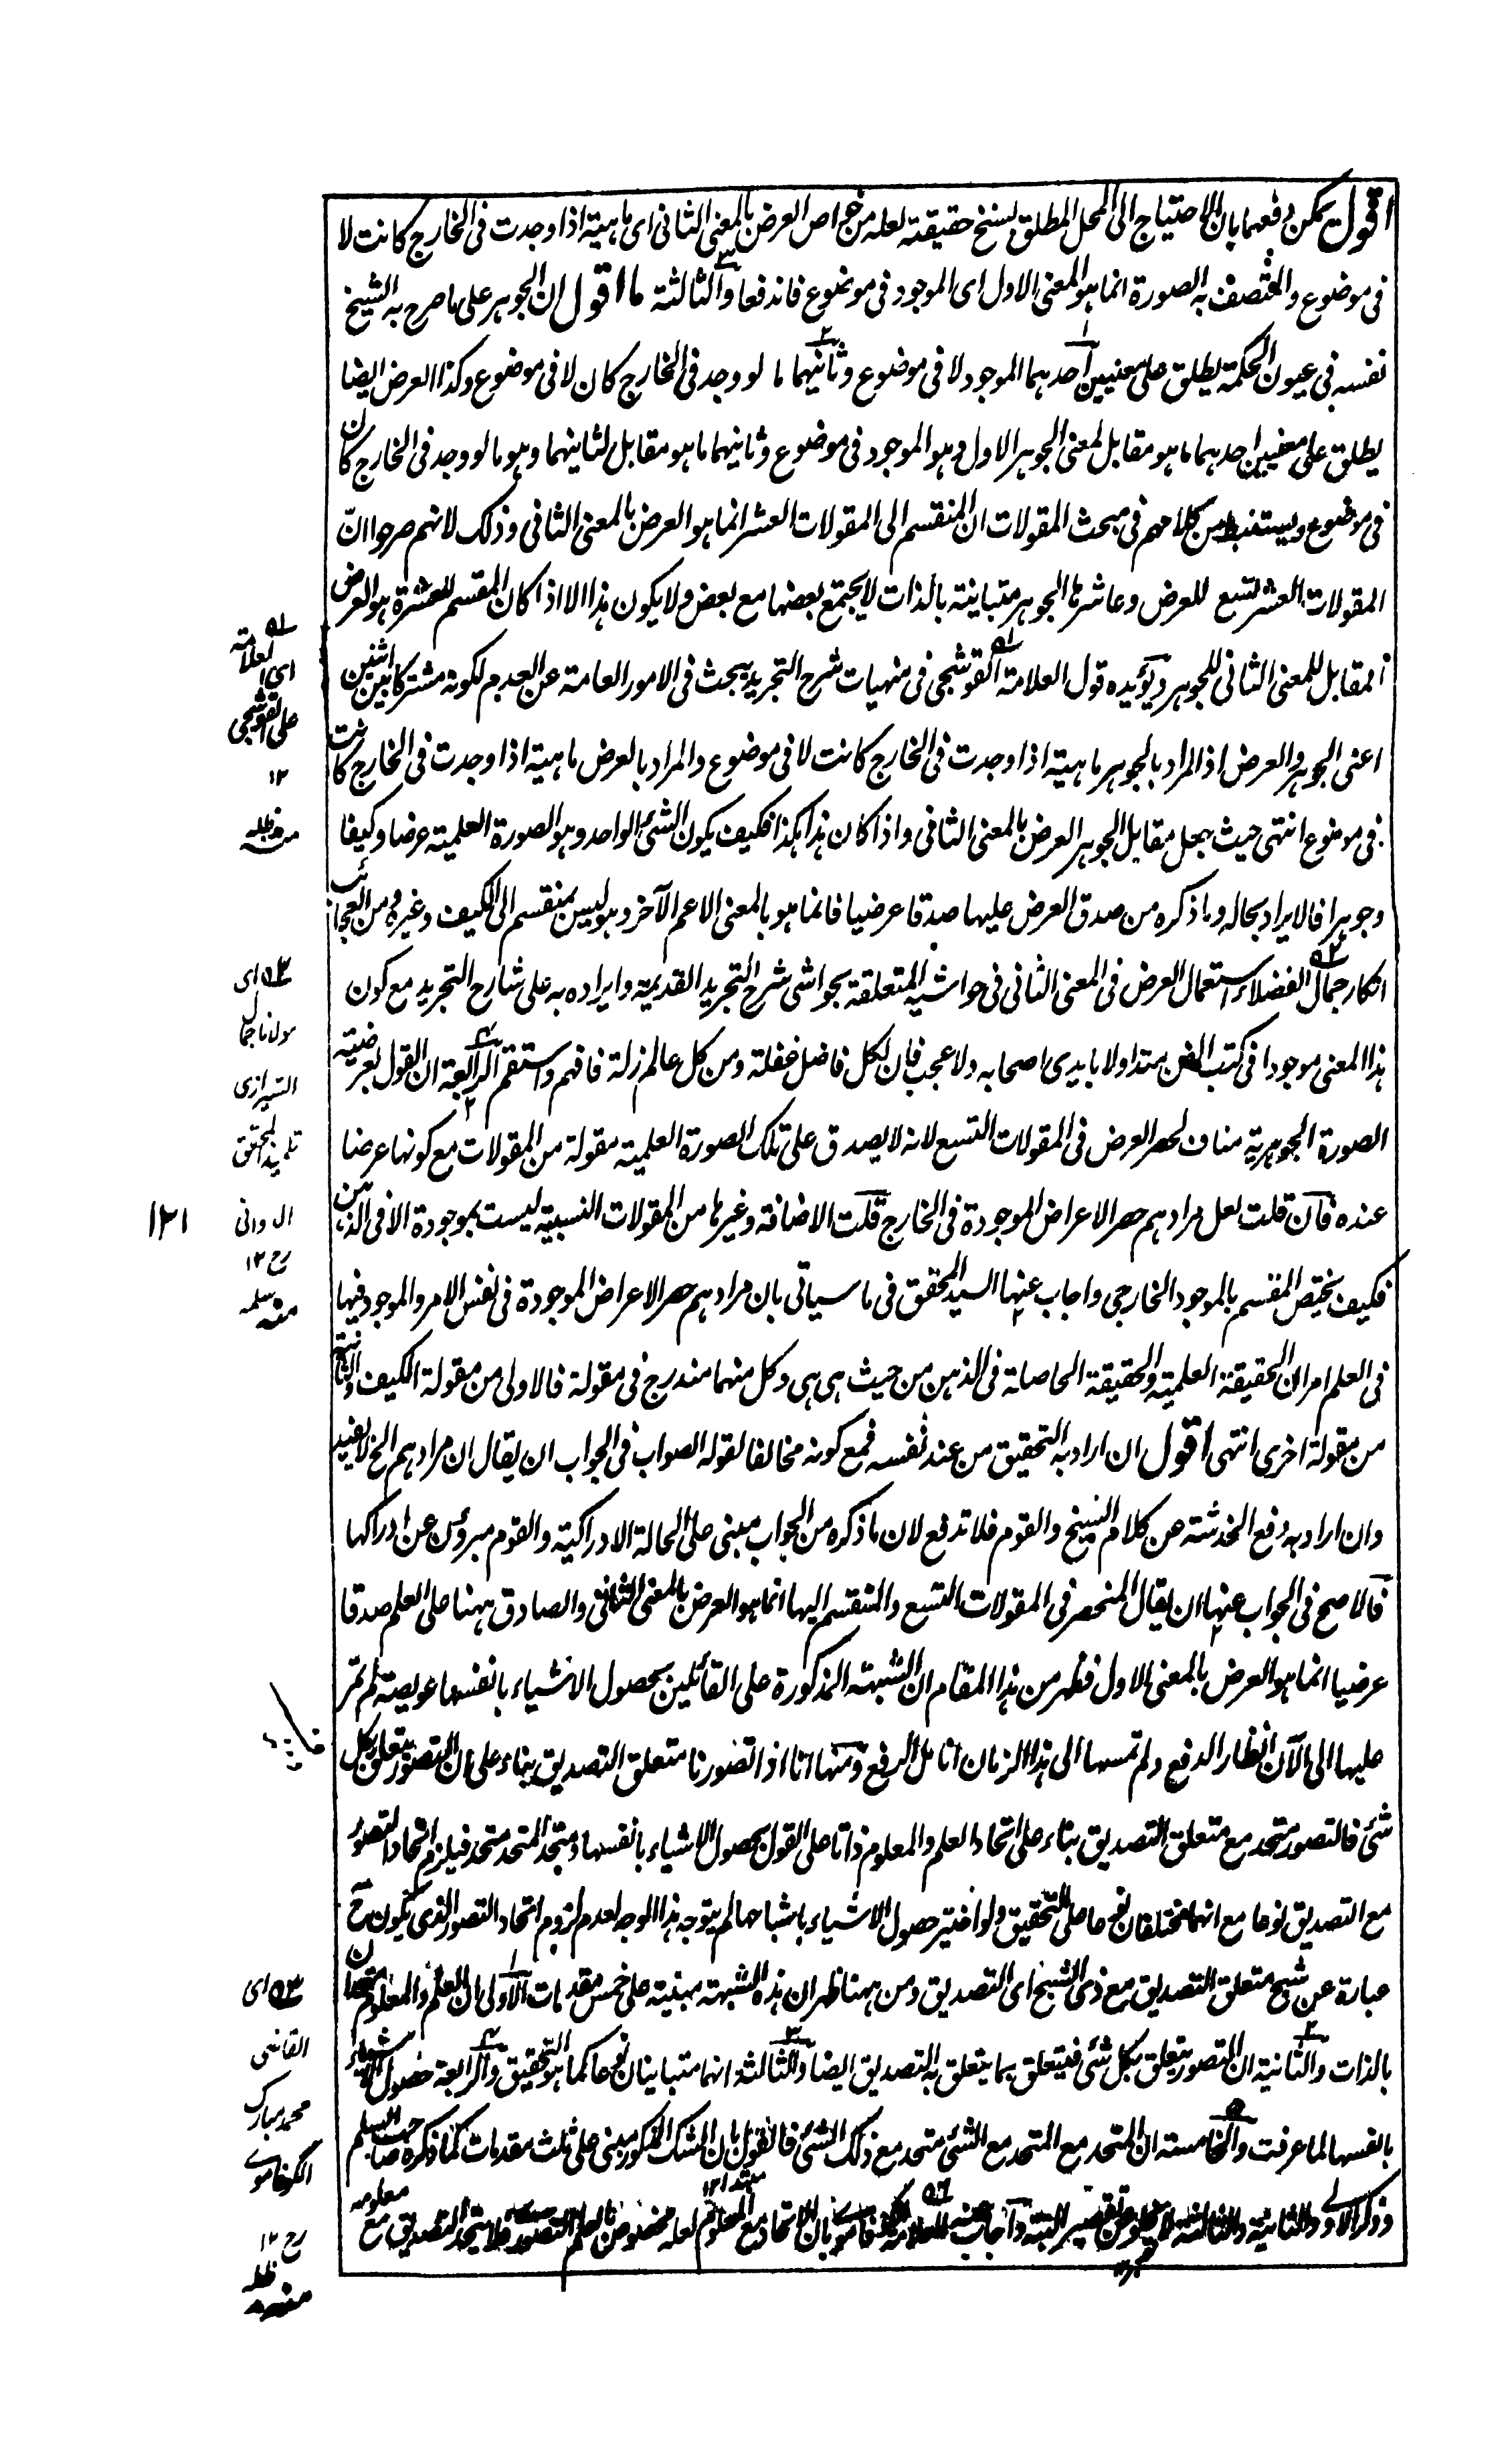 اقول يمكن دفعهما بان الاحتياج الى المحل المطلق لسنخ حقيقته لعله من خواص العرض بالمعنى الثانى اى ماهية اذا وجدت فى الخارج كانت لا
فى موضوع والمتصف به الصورة انما هو المعنى الاول اى الموجود فى موضوع فاندفعا والثالثة ما اقول ان الجوهر على ما صرح به الشيخ
نفسه فى عيون الحكمة يطلق على معنيين احدهما الموجود لا فى موضوع وثانيهما ما لو وجد فى الخارج كان لا فى موضوع وكذا العرض ايضا
يطلق على معنيين احدهما ما هو مقابل لمعنى الجوهر الاول وهو الموجود فى موضوع وثانيهما ما هو مقابل لثانيهما وهو ما لو وجد فى الخارج كان
فى موضوع ويستنبط من كلامهم فى مبحث المقولات ان المنقسم الى المقولات العشر انما هو العرض بالمعنى الثانى وذلك لانهم صرحوا ان
المقولات العشر تسع للعرض وعاشرها الجوهر متباينة بالذات لا يجتمع بعضها مع بعض ولا يكون هذا الا اذا كان المقسم للعشرة هو العرض
المقابل للمعنى الثانى للجوهر ويؤيده قول العلامة القوشجى فى منهيات شرح التجريد يبحث فى الامور العامة عن العدم لكونه مشتركا بين اثنين
اعنى الجوهر والعرض اذ المراد بالجوهر ماهية اذا وجدت فى الخارج كانت لا فى موضوع والمراد بالعرض ماهية اذا وجدت فى الخارج كانت
فى موضوع انتهى حيث جعل مقابل الجوهر العرض بالمعنى الثانى واذا كان هذا هكذا فكيف يكون الشئ الواحد وهو الصورة العلمية عرضا وكيفا
وجوهرا فالايراد بحاله وما ذكره من صدق العرض عليها صدقا عرضيا فانما هو بالمعنى الاعم الآخر وهو ليس بمنقسم الى الكيف وغيره ومن العجائب
انكار جمال الفضلاء استعمال العرض فى المعنى الثانى فى حواشيه المتعلقة بحواشى شرح التجريد القديمة وايراده به على شارح التجريد مع كون
هذا المعنى موجودا فى كتب الفن متداولا بايدى اصحابه ولا عجب فان لكل فاضل غفلة ومن كل عالم زلة فافهم واستقم الرابعة ان القول بعرضية
الصورة الجوهرية مناف لحصر العرض فى المقولات التسع لانه لا يصدق على تلك الصورة العلمية مقولة من المقولات مع كونها عرضا
عنده فان قلت لعل مرادهم حصر الاعراض الموجودة فى الخارج قلت الاضافة وغيرها من المقولات النسبية ليست بموجودة الا فى الذهن
فكيف يختص المقسم بالموجود الخارجى واجاب عنها السيد المحقق فى ما سياتى بان مرادهم حصر الاعراض الموجودة فى نفس الامر والموجود فيها
فى العلم امران الحقيقة العلمية والحقيقة الحاصلة فى الذهن من حيث هى هى وكل منهما مندرج فى مقولة فالاولى من مقولة الكيف والثانية
من مقولة اخرى انتهى اقول ان اراد به التحقيق من عند نفسه فمع كونه مخالفا لقوله الصواب فى الجواب ان يقال ان مرادهم الخ لا يفيد
وان اراد به دفع الخدشة عن كلام الشيخ والقوم فلا تدفع لان ما ذكره من الجواب مبنى على الحالة الادراكية والقوم مبرؤن عن ادراكها
فالاصح فى الجواب عنها ان يقال المنحصر فى المقولات التسع والمنقسم اليها انما هو العرض بالمعنى الثانى والصادق ههنا على العلم صدقا
عرضيا انما هو العرض بالمعنى الاول فظهر من هذا المقام ان الشبهة المذكورة على القائلين بحصول الاشياء بانفسها عويصة لم تمر
عليها الى الآن انظار الدفع ولم تمسها الى هذا الزمان انامل الرفع ومنها انا اذا تصورنا متعلق التصديق بناء على ان التصور يتعلق بكل
شئ فالتصور متحد مع متعلق التصديق بناء على اتحاد العلم والمعلوم ذاتا على القول بحصول الاشياء بانفسها ومتحد المتحد متحد فيلزم اتحاد التصور
مع التصديق نوعا مع انهما مختلفان نوعا على التحقيق ولو اختير حصول الاشياء باشباحها لم يتوجه هذا الوجه لعدم لزوم اتحاد التصور الذى يكون ح
عبارة عن شبح متعلق التصديق مع ذى الشبح اى التصديق ومن ههنا ظهر ان هذه الشبهة مبنية على خمس مقدمات الاولى ان العلم والمعلوم متحدان
بالذات والثانية ان التصور يتعلق بكل شئ فيتعلق بما يتعلق به التصديق ايضا والثالثة انهما متباينان نوعا كما هو التحقيق والرابعة حصول الاشياء
بانفسها لما عرفت والخامسة ان المتحد مع المتحد مع الشئ متحد مع ذلك الشئ فالقول بان الشك المذكور مبنى على ثلث مقدمات كما ذكره صاحب السلم
وذكر الاولى والثانية والثالثة لا يخلو عن تقصير البتة واجاب عنه العلامة الكوفاموى بان الاتحاد مع المعلوم لعله مخصوص بالعلم التصورى فلا يتحد التصديق مع معلومه
مبتدا ١٢
۵۱ اى العلامة
على القوشجى
١٢
منه ظله
۵۲ اى
مولانا جمال
الشيرازى
تلميذ المحقق
الدوانى
رح ١٢
منه سلمه
١٢١
۵۳ اى
القاضى
محمد مبارك
الكوفاموى
رح ١٢
منه ظله